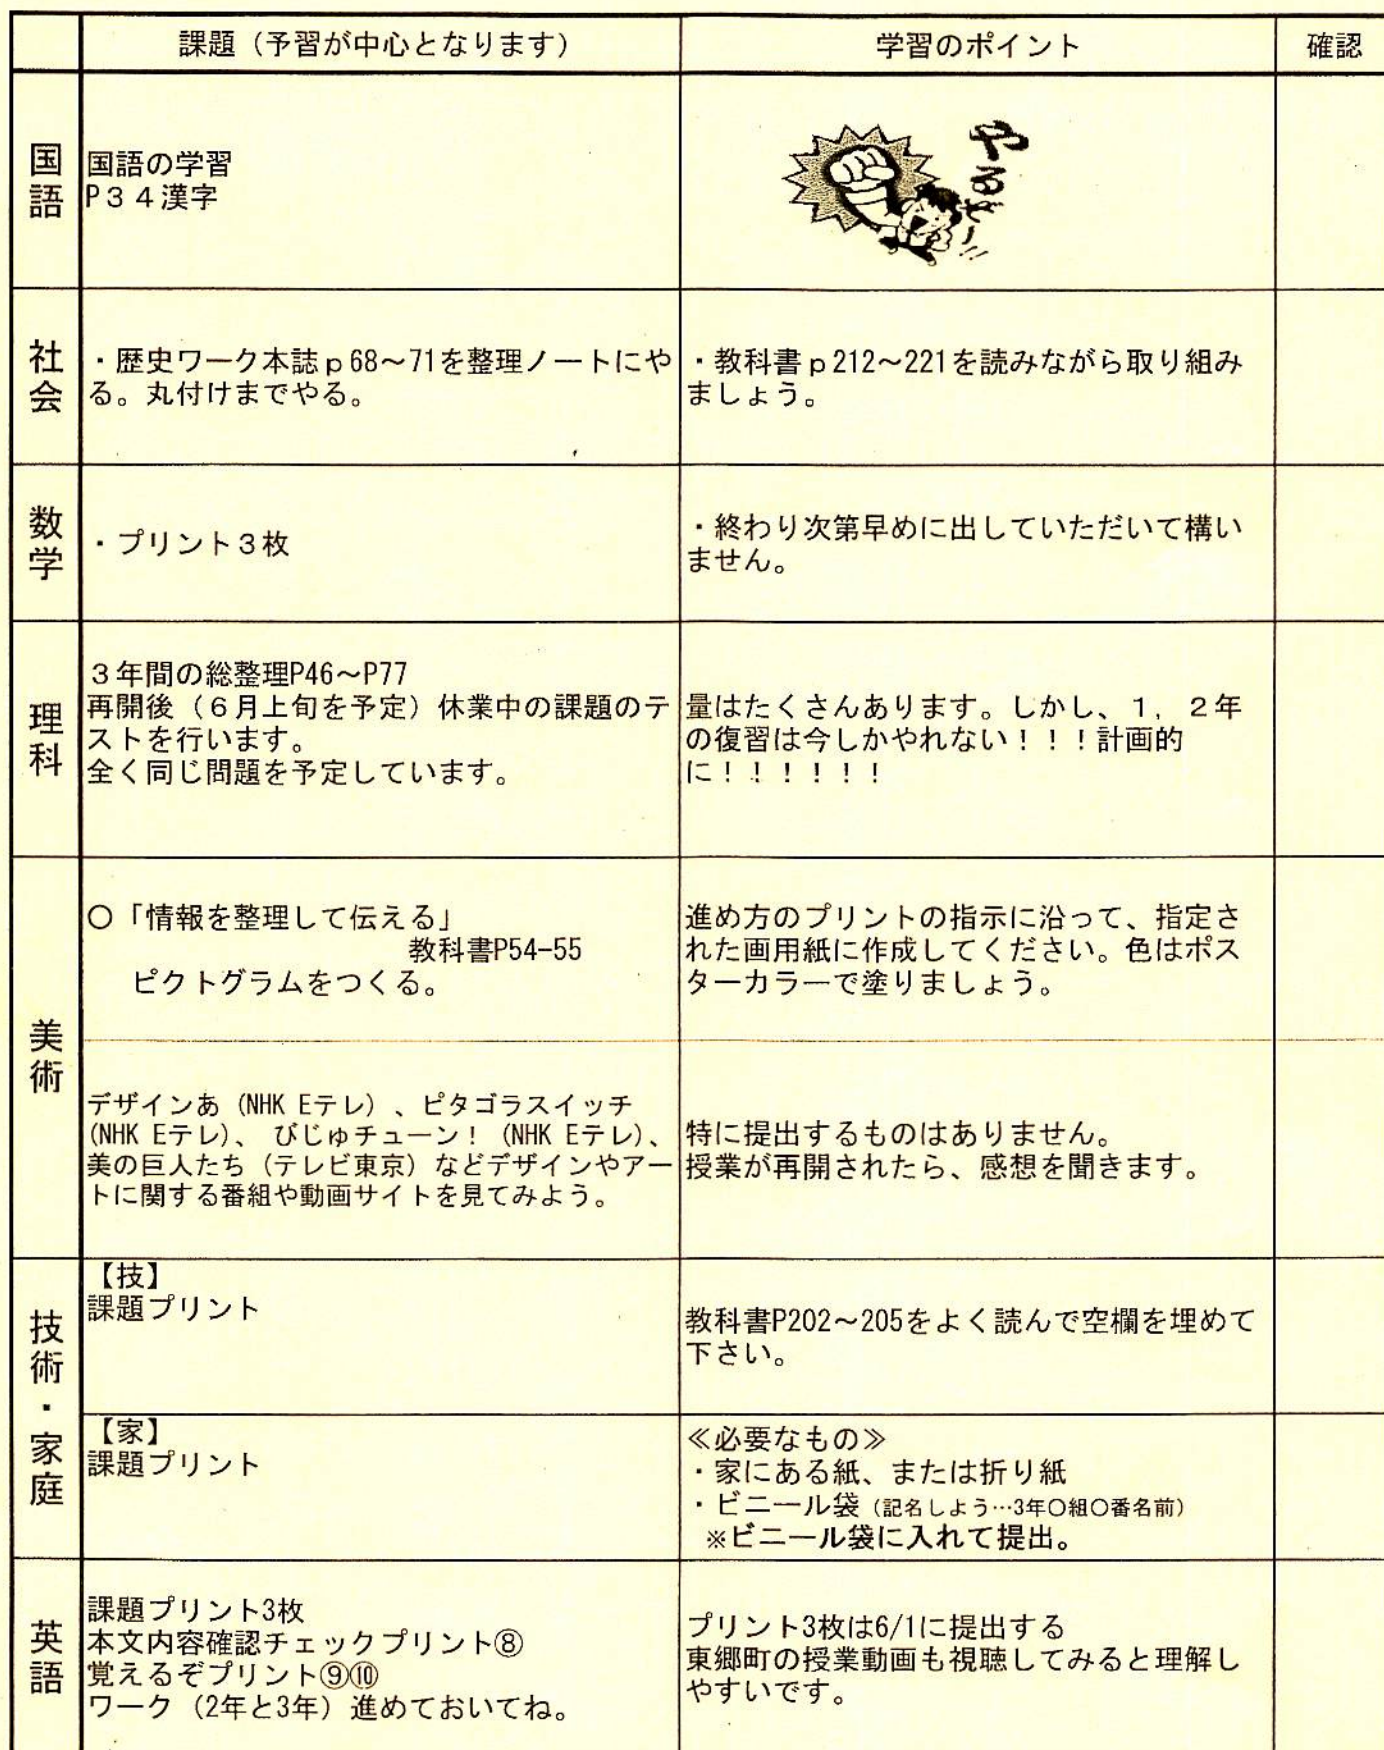 課題（予習が中心となります）
学習のポイント
確認
国語
国語の学習
P３４漢字
やるぞー!!
社会
・歴史ワーク本誌ｐ68～71を整理ノートにや
る。丸付けまでやる。
・教科書ｐ212～221を読みながら取り組み
ましょう。
数学
・プリント３枚
・終わり次第早めに出していただいて構い
ません。
理科
３年間の総整理P46～P77
再開後（６月上旬を予定）休業中の課題のテ
ストを行います。
全く同じ問題を予定しています。
量はたくさんあります。しかし、１，２年
の復習は今しかやれない！！！計画的
に！！！！！！
美術
〇「情報を整理して伝える」
教科書P54-55
ピクトグラムをつくる。
進め方のプリントの指示に沿って、指定さ
れた画用紙に作成してください。色はポス
ターカラーで塗りましょう。
デザインあ（NHK Eテレ）、ピタゴラスイッチ
(NHK Eテレ)、 びじゅチューン！（NHK Eテレ)、
美の巨人たち（テレビ東京）などデザインやアー
トに関する番組や動画サイトを見てみよう。
特に提出するものはありません。
授業が再開されたら、感想を聞きます。
技術・家庭
【技】
課題プリント
教科書P202～205をよく読んで空欄を埋めて
下さい。
【家】
課題プリント
≪必要なもの≫
・家にある紙、または折り紙
・ビニール袋（記名しよう…3年〇組〇番名前）
※ビニール袋に入れて提出。
英語
課題プリント3枚
本文内容確認チェックプリント⑧
覚えるぞプリント⑨⑩
ワーク（2年と3年）進めておいてね。
プリント3枚は6/1に提出する
東郷町の授業動画も視聴してみると理解し
やすいです。